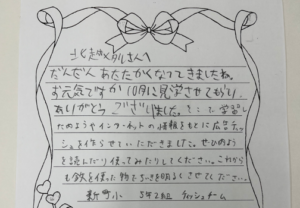 北越メタルさんへ
だんだんあたたかくなってきましたね。
お元気ですか 10月に見学させてもらい、
ありがとうございました。そこで学習し
たのようやインターネットの情報をもとに広告ティッ
シュを作らせていただきました。ぜひのよう
を読んだり使ってみたりしてください。これから
も鉄を使った物でちいきを明るくさせてください。
新町小 5年2組 ティッシュチーム